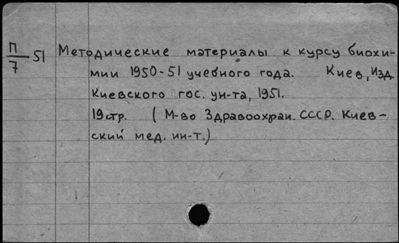 П/7 51 Методические материалы к курсу биохи-
мии 1950-51 учебного года. Киев, Изд.
Киевского гос. ун-та, 1951.
19 стр. (М-во Здравоохран. СССР. Киев-
ский мед. ин-т.)